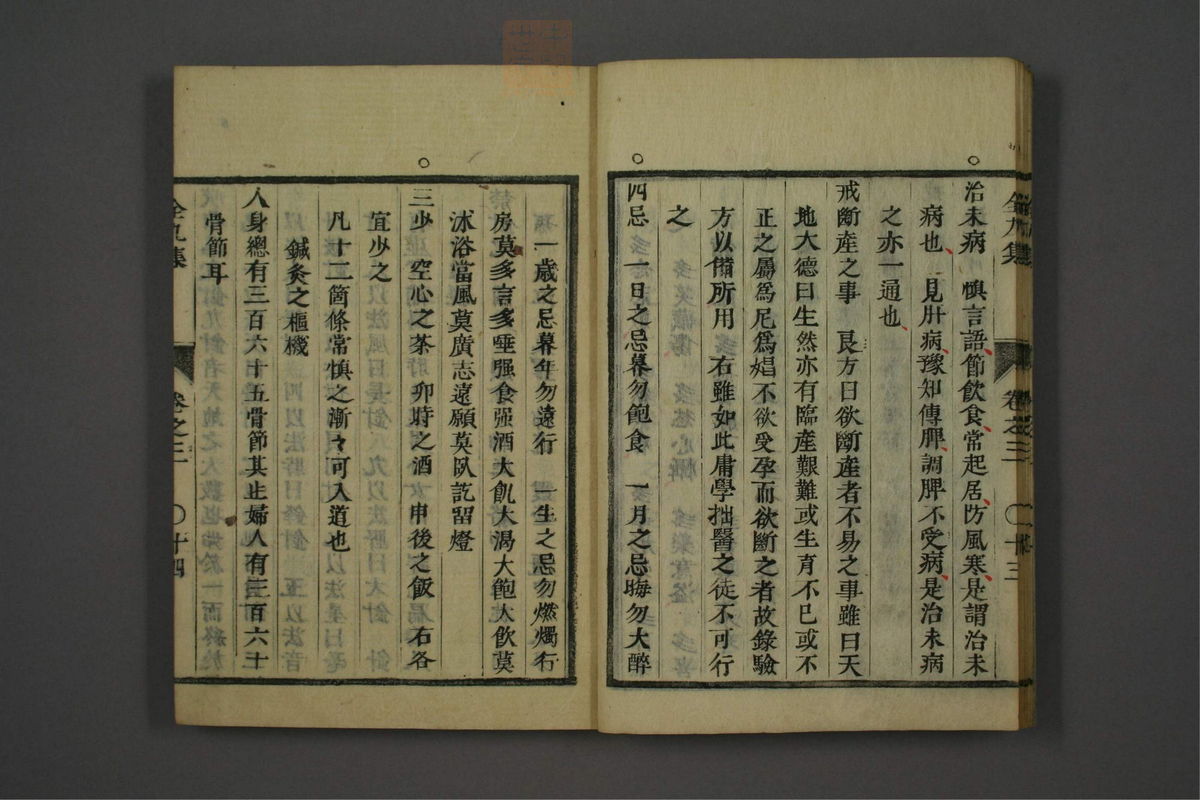 全九集 卷之三 〇 二十三
治未病 慎言語節飲食常起居防風寒是謂治未
病也 見肝病豫知傳脾調脾不受病是治未病
之亦一通也
戒斷産之事 良方曰欲斷産者不易之事雖曰天
地大德曰生然亦有臨産艱難或生育不已或不
正之屬爲尼爲娼不欲受孕而欲斷之者故錄驗
方以備所用 右雖如此庸學拙醫之徒不可行
之
四忌 一日之忌暮勿飽食 一月之忌晦勿大醉
一歲之忌暮年勿遠行 一生之忌勿燃燭行
房莫多言多唾强食强酒大飢大渴大飽大飲莫
沐浴當風莫廣志遠願莫臥訖留燈
三少 空心之茶 卯時之酒 申後之飯 右各
宜少之
凡十二箇條常慎之漸々可入道也
鍼灸之樞機
人身總有三百六十五骨節其止婦人有三百六十
骨節耳
全九集 卷之三 〇 十四